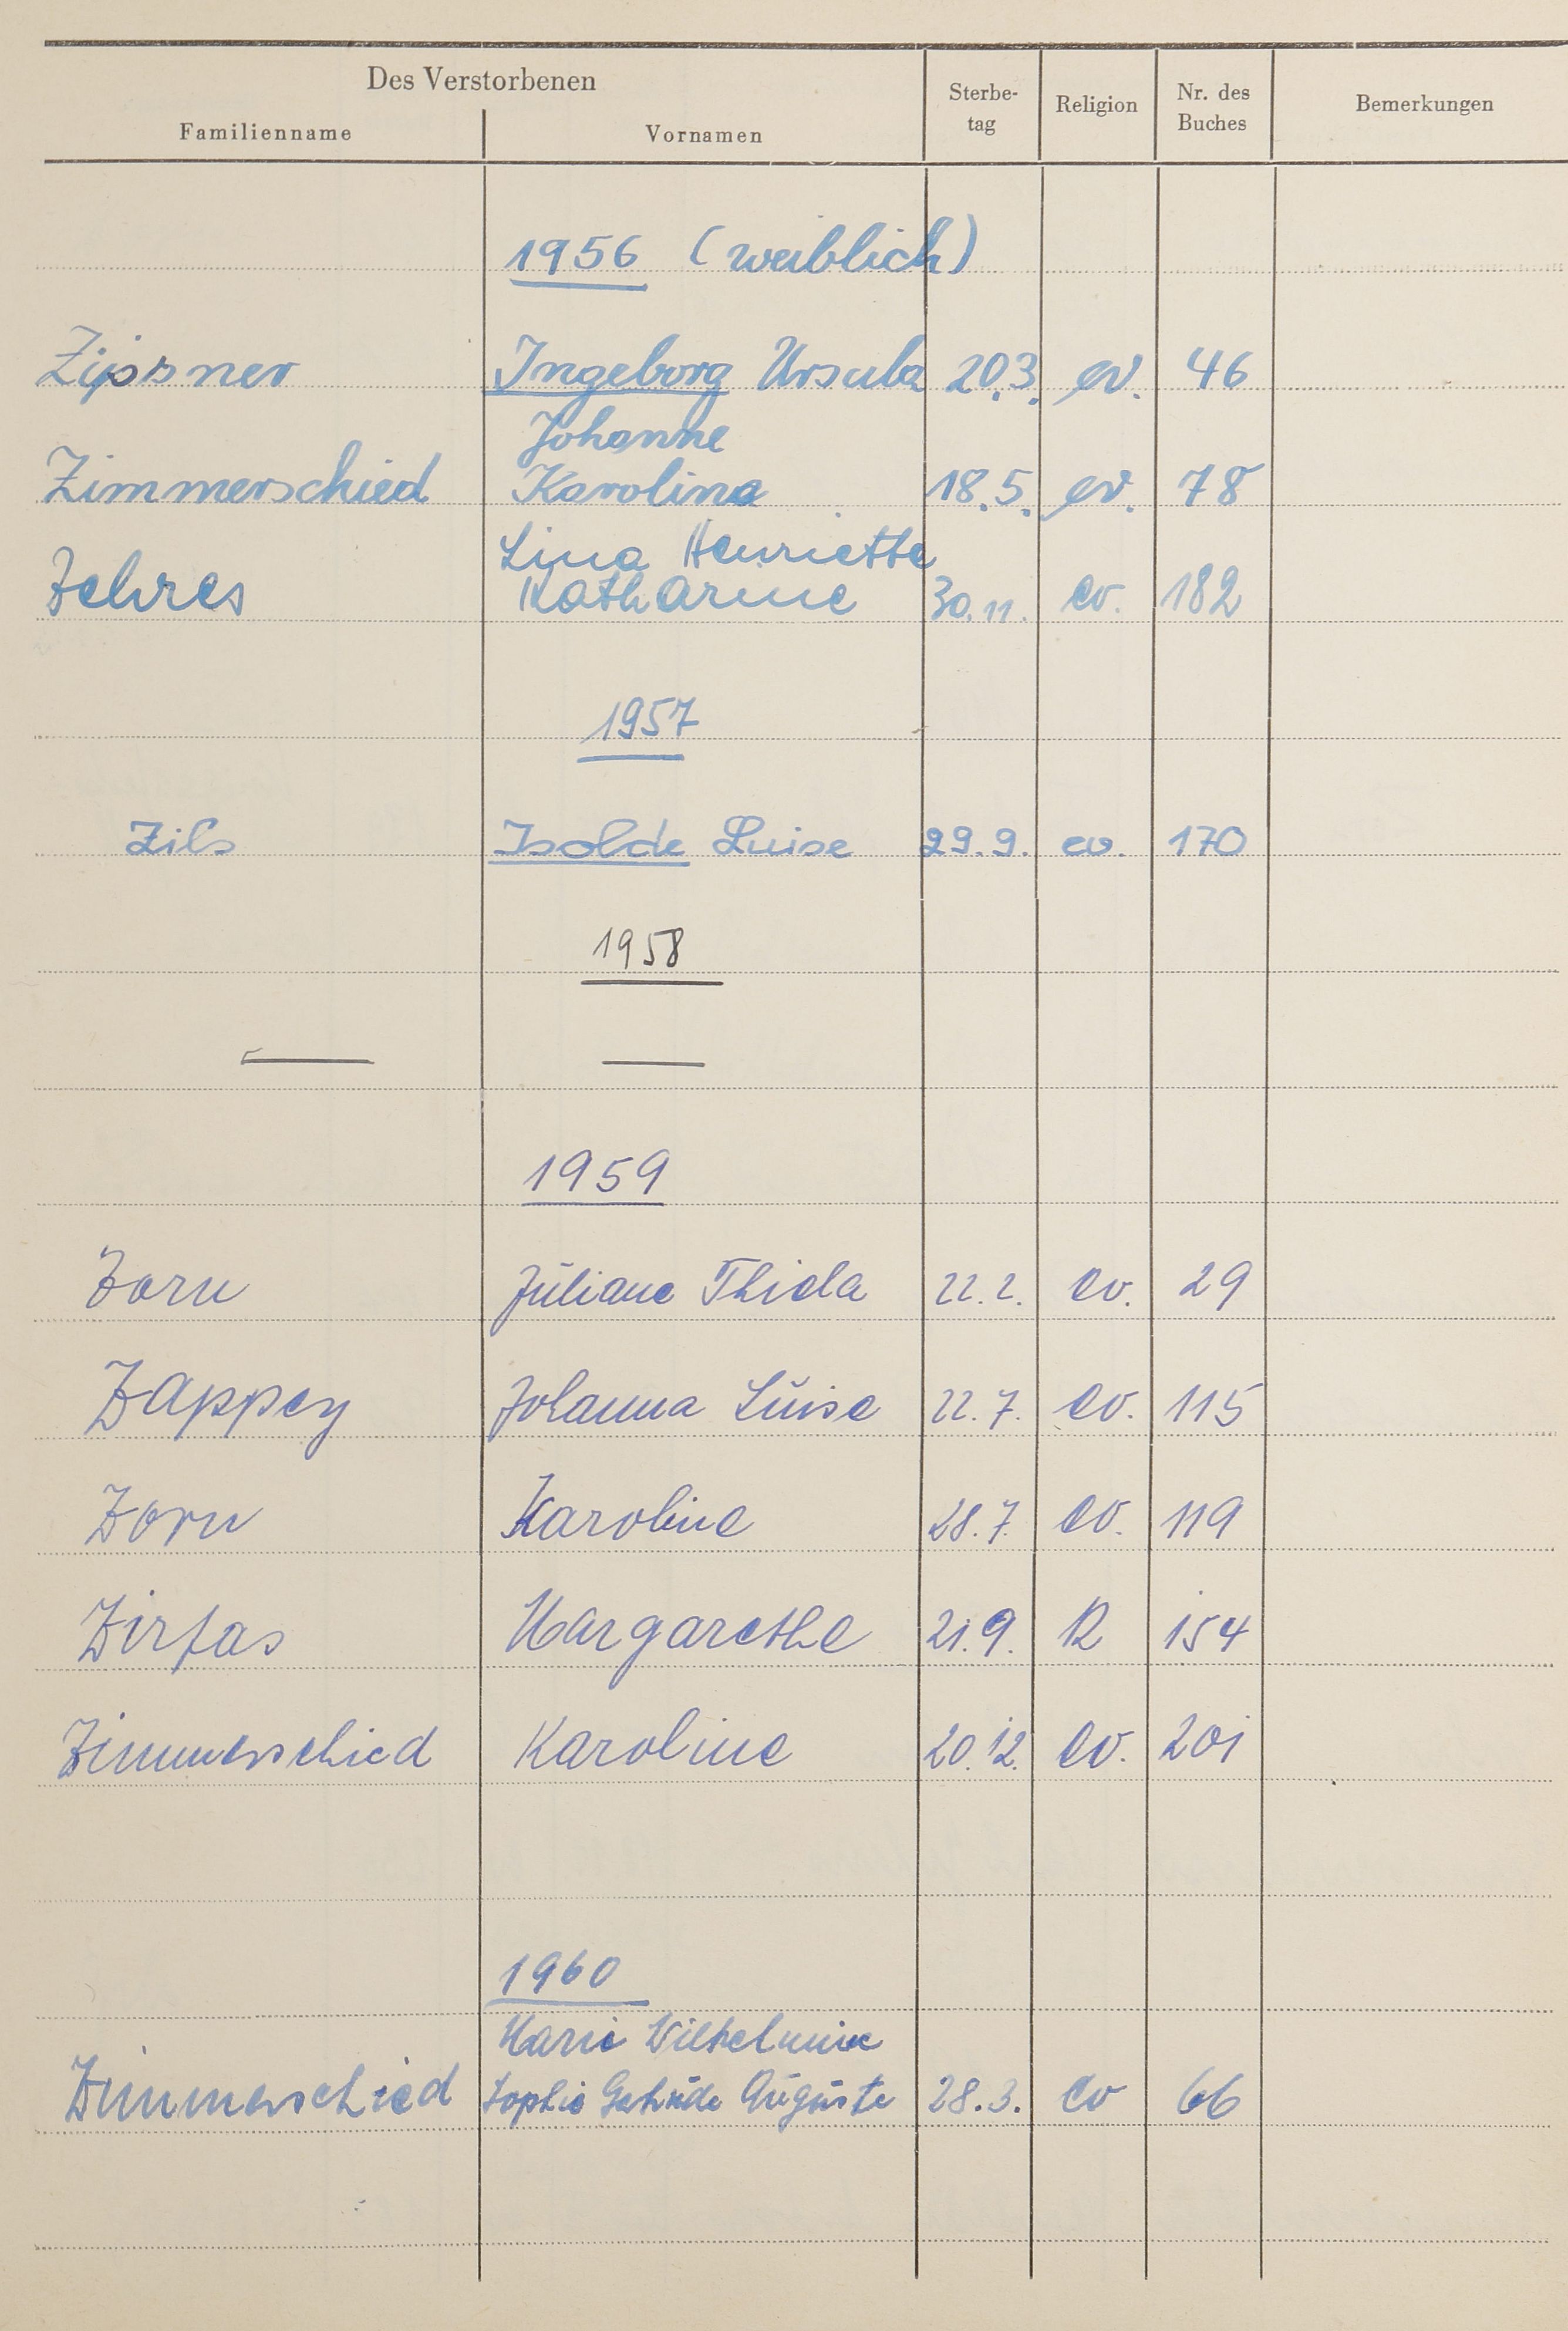 Des Verstorbenen
Familienname Vornamen Sterbe-tag Religion Nr. des Buches Bemerkungen
1956 (weiblich)
Zipsner Ingeborg Ursula 20.3. ev. 46
Johanne
Zimmerschied Karolina 18.5. ev. 78
Lina Henriette
Zehres Katharine 30.11. ev. 182
1957
Zils Isolde Luise 29.9. ev. 170
1958
— —
1959
Zorn Juliane Thida 22.2. ev. 29
Zappey Johanna Luise 22.7. ev. 115
Zorn Karoline 28.7. ev. 119
Zirfas Margarethe 21.9. R 154
Zimmerschied Karoline 20.12. ev. 201
1960
Marie Wilhelmine
Zimmerschied Sophie Gertrude Auguste 28.3. ev 66